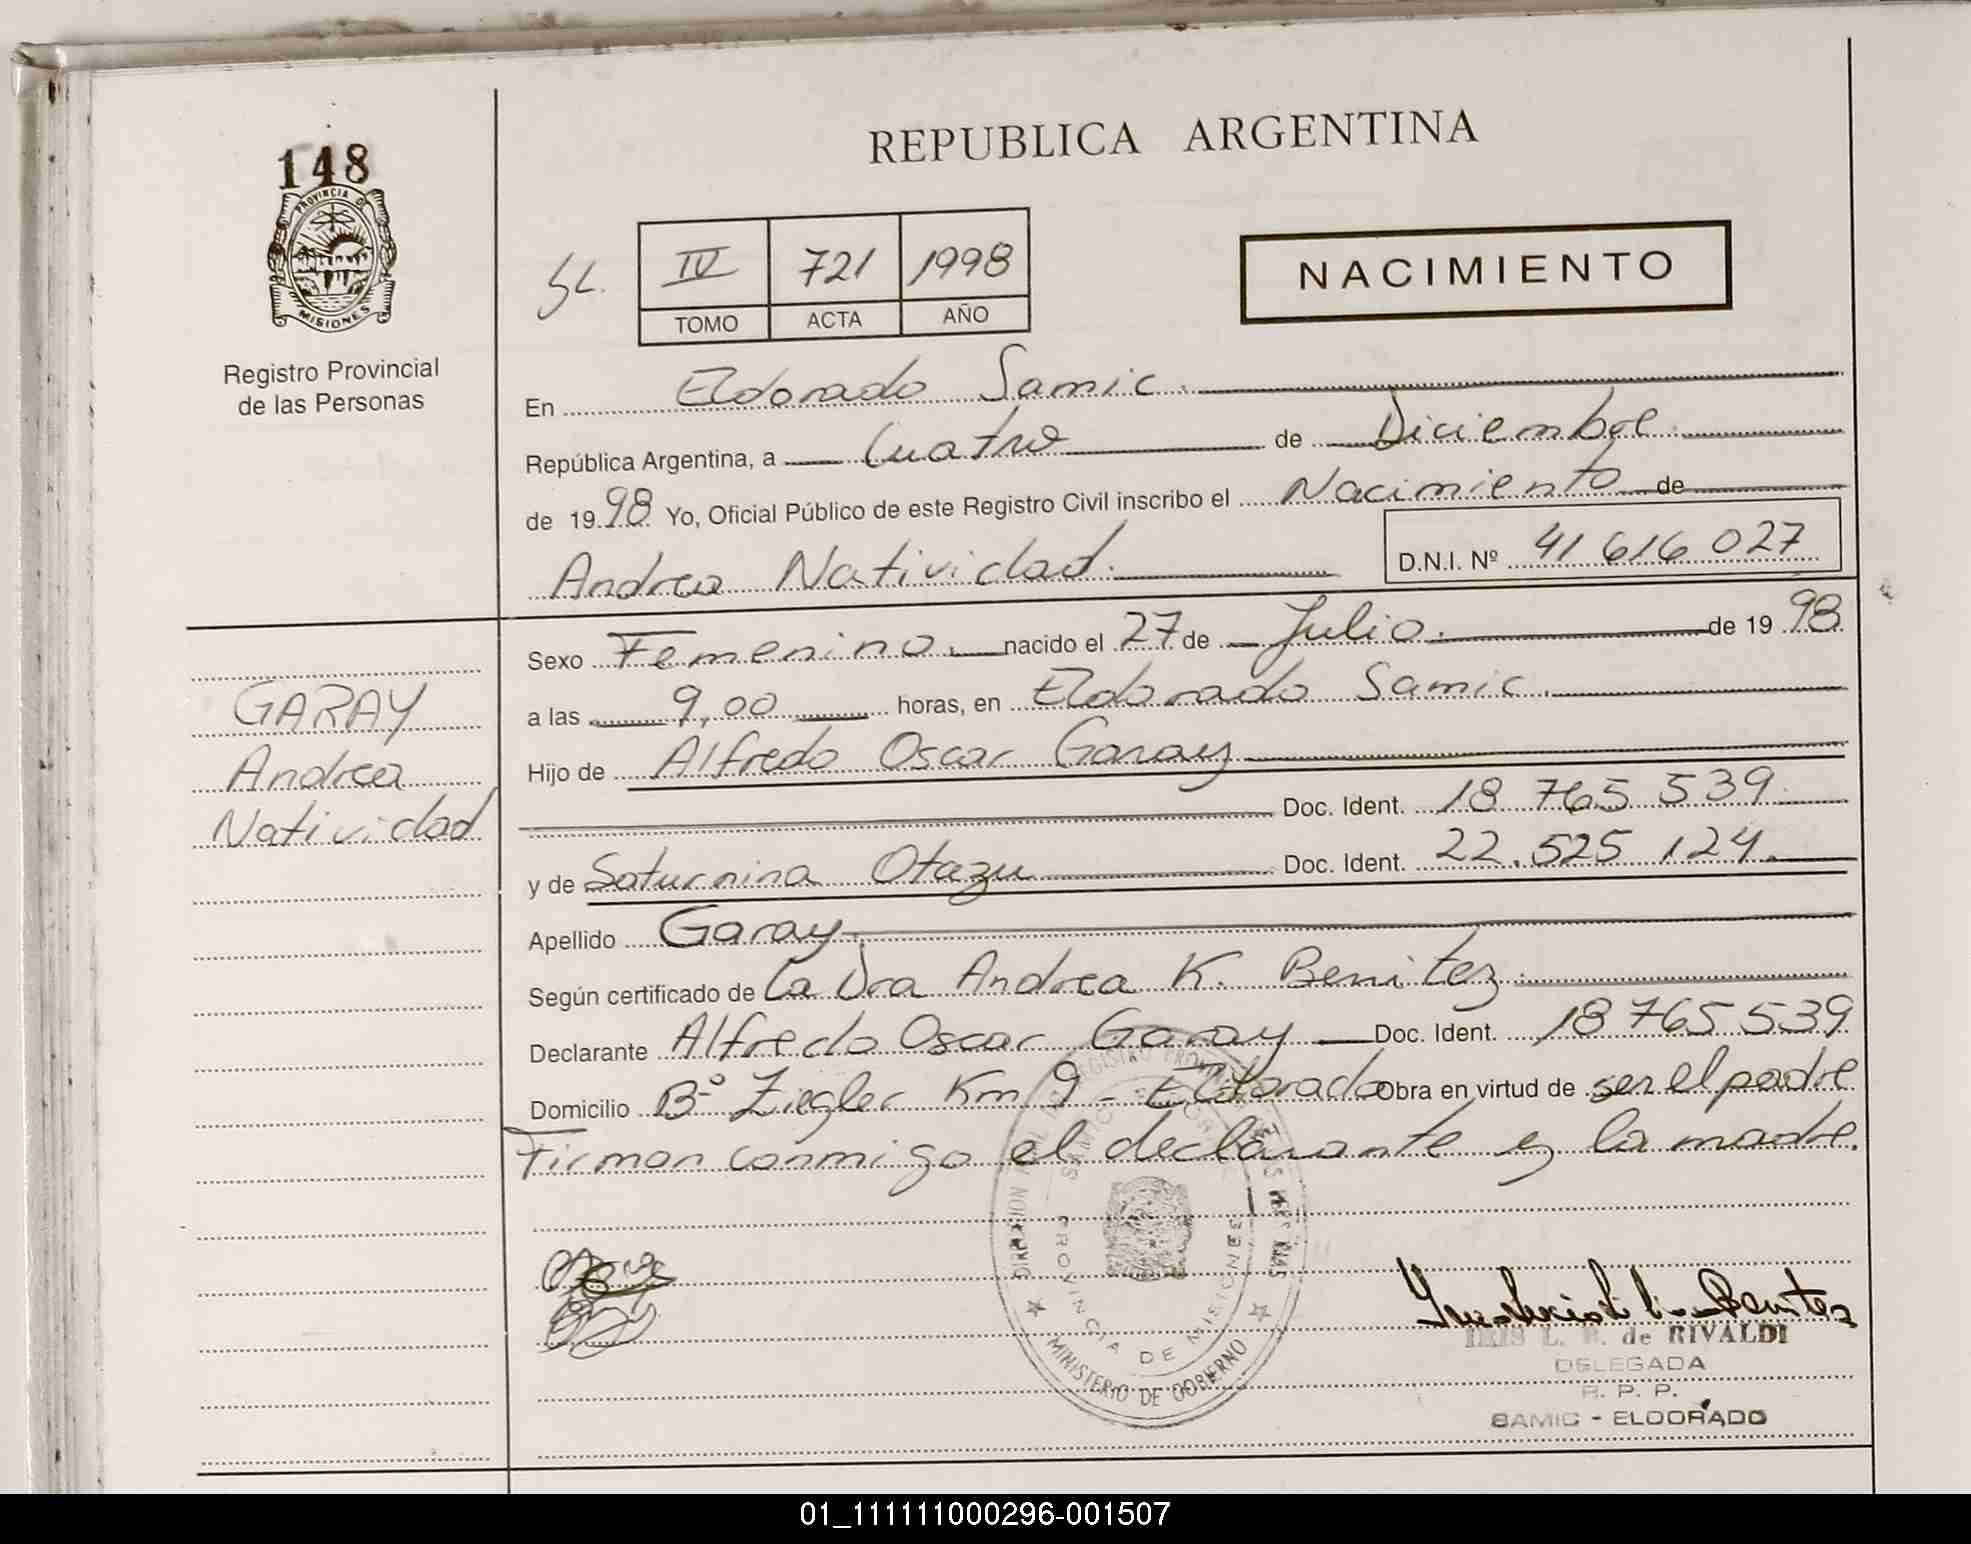 148
PROVINCIA D
MISIONES
Registro Provincial
de las Personas
REPUBLICA ARGENTINA
IV 721 1998
TOMO ACTA AÑO
NACIMIENTO
En Eldorado Samic.
República Argentina, a Cuatro de Diciembre.
de 1998 Yo, Oficial Público de este Registro Civil inscribo el Nacimiento de
Andrea Natividad. D.N.I. Nº 41 616 027
GARAY
Andrea
Natividad
Sexo Femenino. nacido el 27 de Julio. de 19 98
a las 9,00 horas, en Eldorado Samic.
Hijo de Alfredo Oscar Garay
Doc. Ident. 18 765 539.
y de Saturnina Otazu Doc. Ident. 22.525 124.
Apellido Garay.
Según certificado de La Dra Andrea K. Benitez.
Declarante Alfredo Oscar Garay Doc. Ident. 18 765 539
Domicilio Bº Ziegler Km 9 - Eldorado Obra en virtud de ser el padre
Firman conmigo el declarante y la madre.
PROVINCIA DE MISIONES
MINISTERIO DE GOBIERNO
IRIS L. B. de RIVALDI
DELEGADA
R. P. P.
SAMIC - ELDORADO
01_111111000296-001507